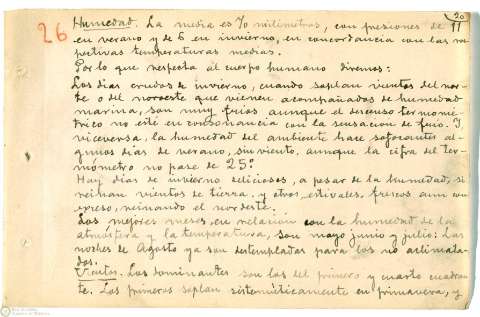 26
20
Humedad. La media es 10 milímetros, con presiones de 11
en verano y de 6 en invierno, en concordancia con las res
pectivas temperaturas medias.
Por lo que respecta al cuerpo humano diremos:
Los dias crudos de invierno, cuando soplan vientos del nor-
te o del noroeste que vienen acompañados de humedad
marina, son muy frios aunque el descenso termomé-
trico no esté en consonancia con la sensacion de frio. Y
viceversa. la humedad del ambiente hace sofocantes al-
gunos dias de verano, sin viento, aunque la cifra del ter-
mómetro no pase de 25º
Hay dias de invierno deliciosos, a pesar de la humedad, si
reinan vientos de tierra, y otros estivales, frescos aun con
exceso, reinando el nordeste.
Los mejores meses, en relación con la humedad de la
atmósfera y la temperatura, son mayo junio y julio: las
noches de Agosto ya son destempladas para los no aclimata-
dos.
Vientos. Los dominantes son los del primero y cuarto cuadran
te. Los primeros soplan sistemáticamente en primavera, y